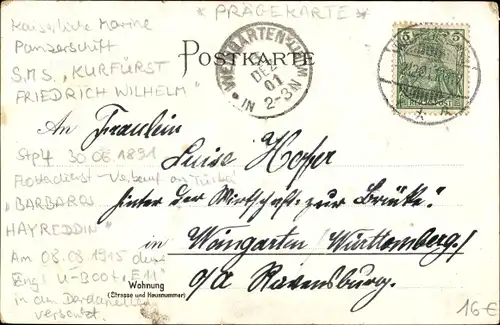 * PRÄGEKARTE *
Kaiserliche Marine
Panzerschiff
S.M.S. "KURFÜRST
FRIEDRICH WILHELM"
POSTKARTE
WEINGARTEN
DEZ
01
IN 2-3N
5
REICHSPOST
5
An Fräulein
Stpl 30.06.1891
Luise Hofer
Verkauf an Türkei
"BARBAROS
HAYREDDIN"
hinter der Wirtschaft "zur Brücke"
in Weingarten (Württemberg)
Am 08.08.1915 durch
Engl. U-Boot "E11"
in den Dardanellen
versenkt.
Wohnung
(Strasse und Hausnummer)
o/a Ravensburg.
16€